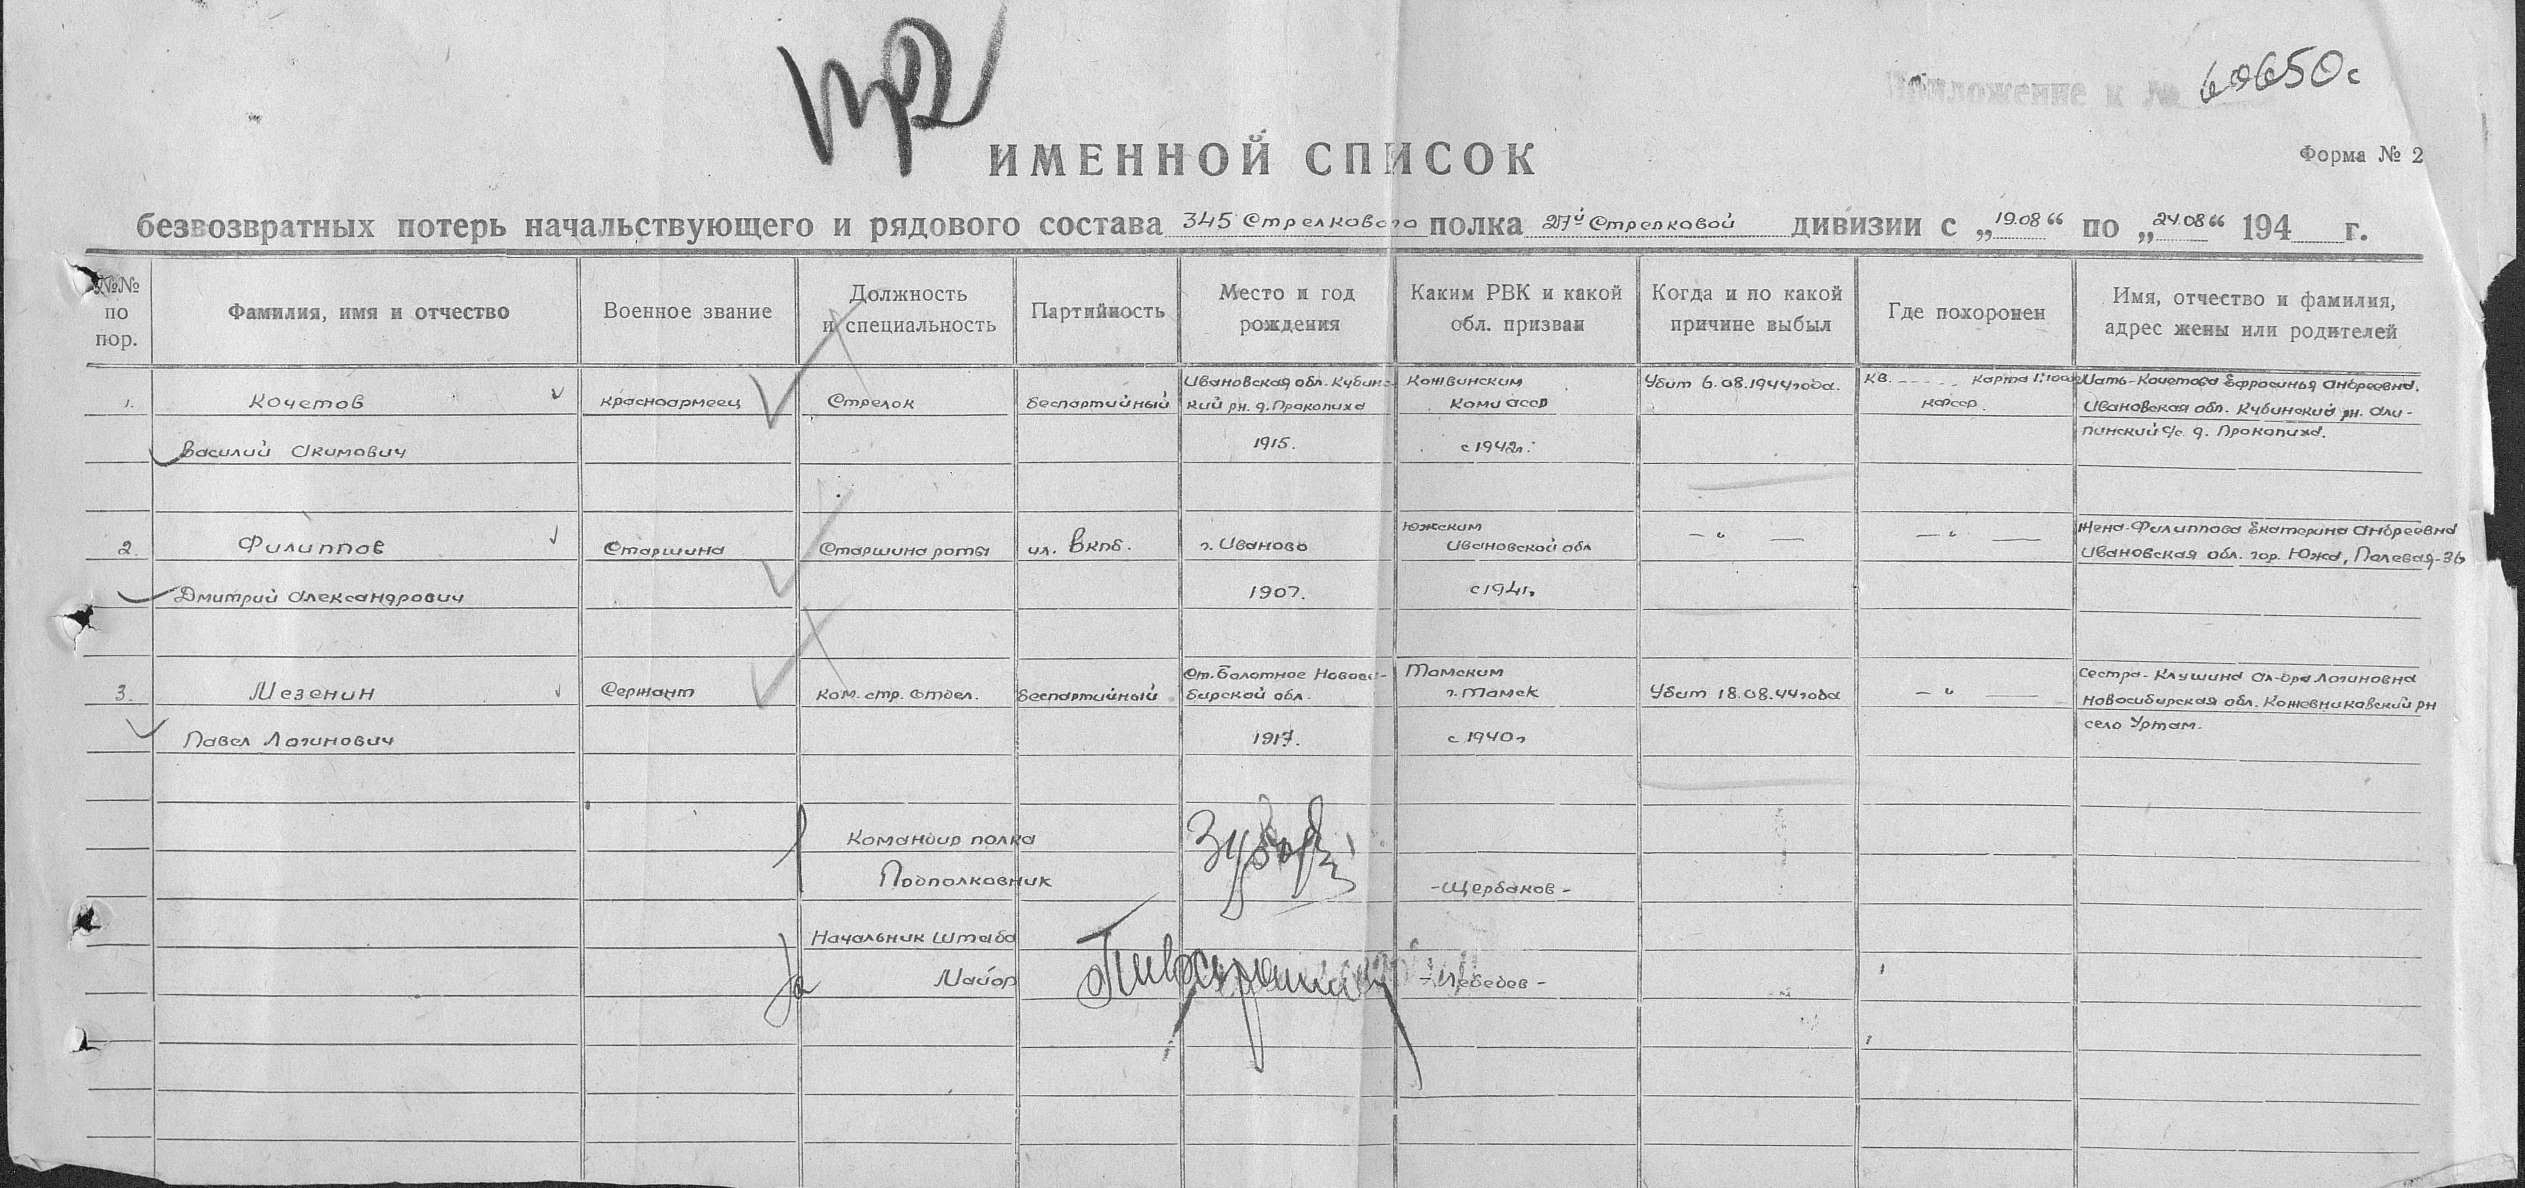 Приложение к №
69650с
ИМЕННОЙ СПИСОК
Форма № 2
безвозвратных потерь начальствующего и рядового состава 345 Стрелкового полка 27й Стрелковой дивизии с „19.08“ по „24.08“ 194 г.
№№ по пор.
Фамилия, имя и отчество
Военное звание
Должность и специальность
Партийность
Место и год рождения
Каким РВК и какой обл. призван
Когда и по какой причине выбыл
Где похоронен
Имя, отчество и фамилия, адрес жены или родителей
1.
Кочетов
Василий Акимович
красноармеец
Стрелок
беспартийный
Ивановская обл. Кубинс-
кий рн. д. Прокопиха
1915.
Кожвинским
Коми АССР
с 1942г.
Убит 6.08.1944года.
кв. карта
КФССР.
Мать-Кочетова Ефросинья Андреевна.
Ивановская обл. Кубинский рн. Али-
пинский с/с. д. Прокопиха.
2.
Филиппов
Дмитрий Александрович
Старшина
Старшина роты
чл. ВКПб.
г. Иваново
1907.
Южским
Ивановской обл
с 1941г.
— " —
— " —
Жена-Филиппова Екатерина Андреевна
Ивановская обл. гор. Южа, Полевая-36
3.
Мезенин
Павел Логинович
Сержант
ком. стр. отдел.
беспартийный
Ст. Болотное Новоси-
бирской обл.
1917.
Томским
г. Томск
с 1940г
Убит 18.08.44года
— " —
Сестра-Клушина Ал-дра Логиновна
Новосибирская обл. Кожевниковский рн
село Уртам.
Командир полка
Подполковник
-Щербаков-
Начальник Штаба
Майор
-Лебедев-